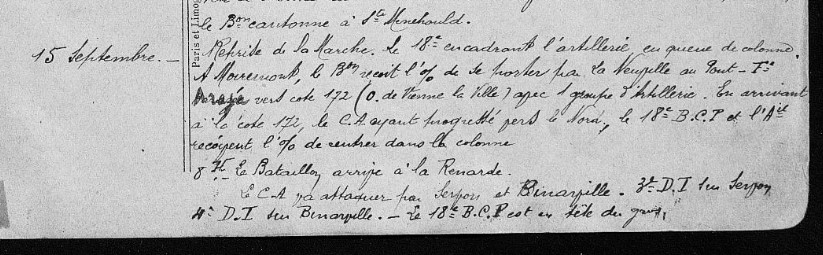 le B^on cantonne à S^te Menehould.
15 Septembre. — Reprise de la Marche. Le 18^e encadrant l'artillerie, en queue de colonne.
A Moiremont, le B^on reçoit l'% de se porter par La Neuville au Pont - F^e
vers cote 172 (O. de Vienne la Ville) avec 1 groupe d'Artillerie. En arrivant
à la cote 172, le C.A ayant progressé vers le Nord, le 18^e B.C.P et l'A^ie
reçoivent l'% de rentrer dans la colonne
8^H Le Bataillon arrive à la Renarde.
Le C.A va attaquer par Servon et Binarville. 3^e D.I sur Servon
4^e D.I sur Binarville. — Le 18^e B.C.P est en tête du gros,
Paris et Limo